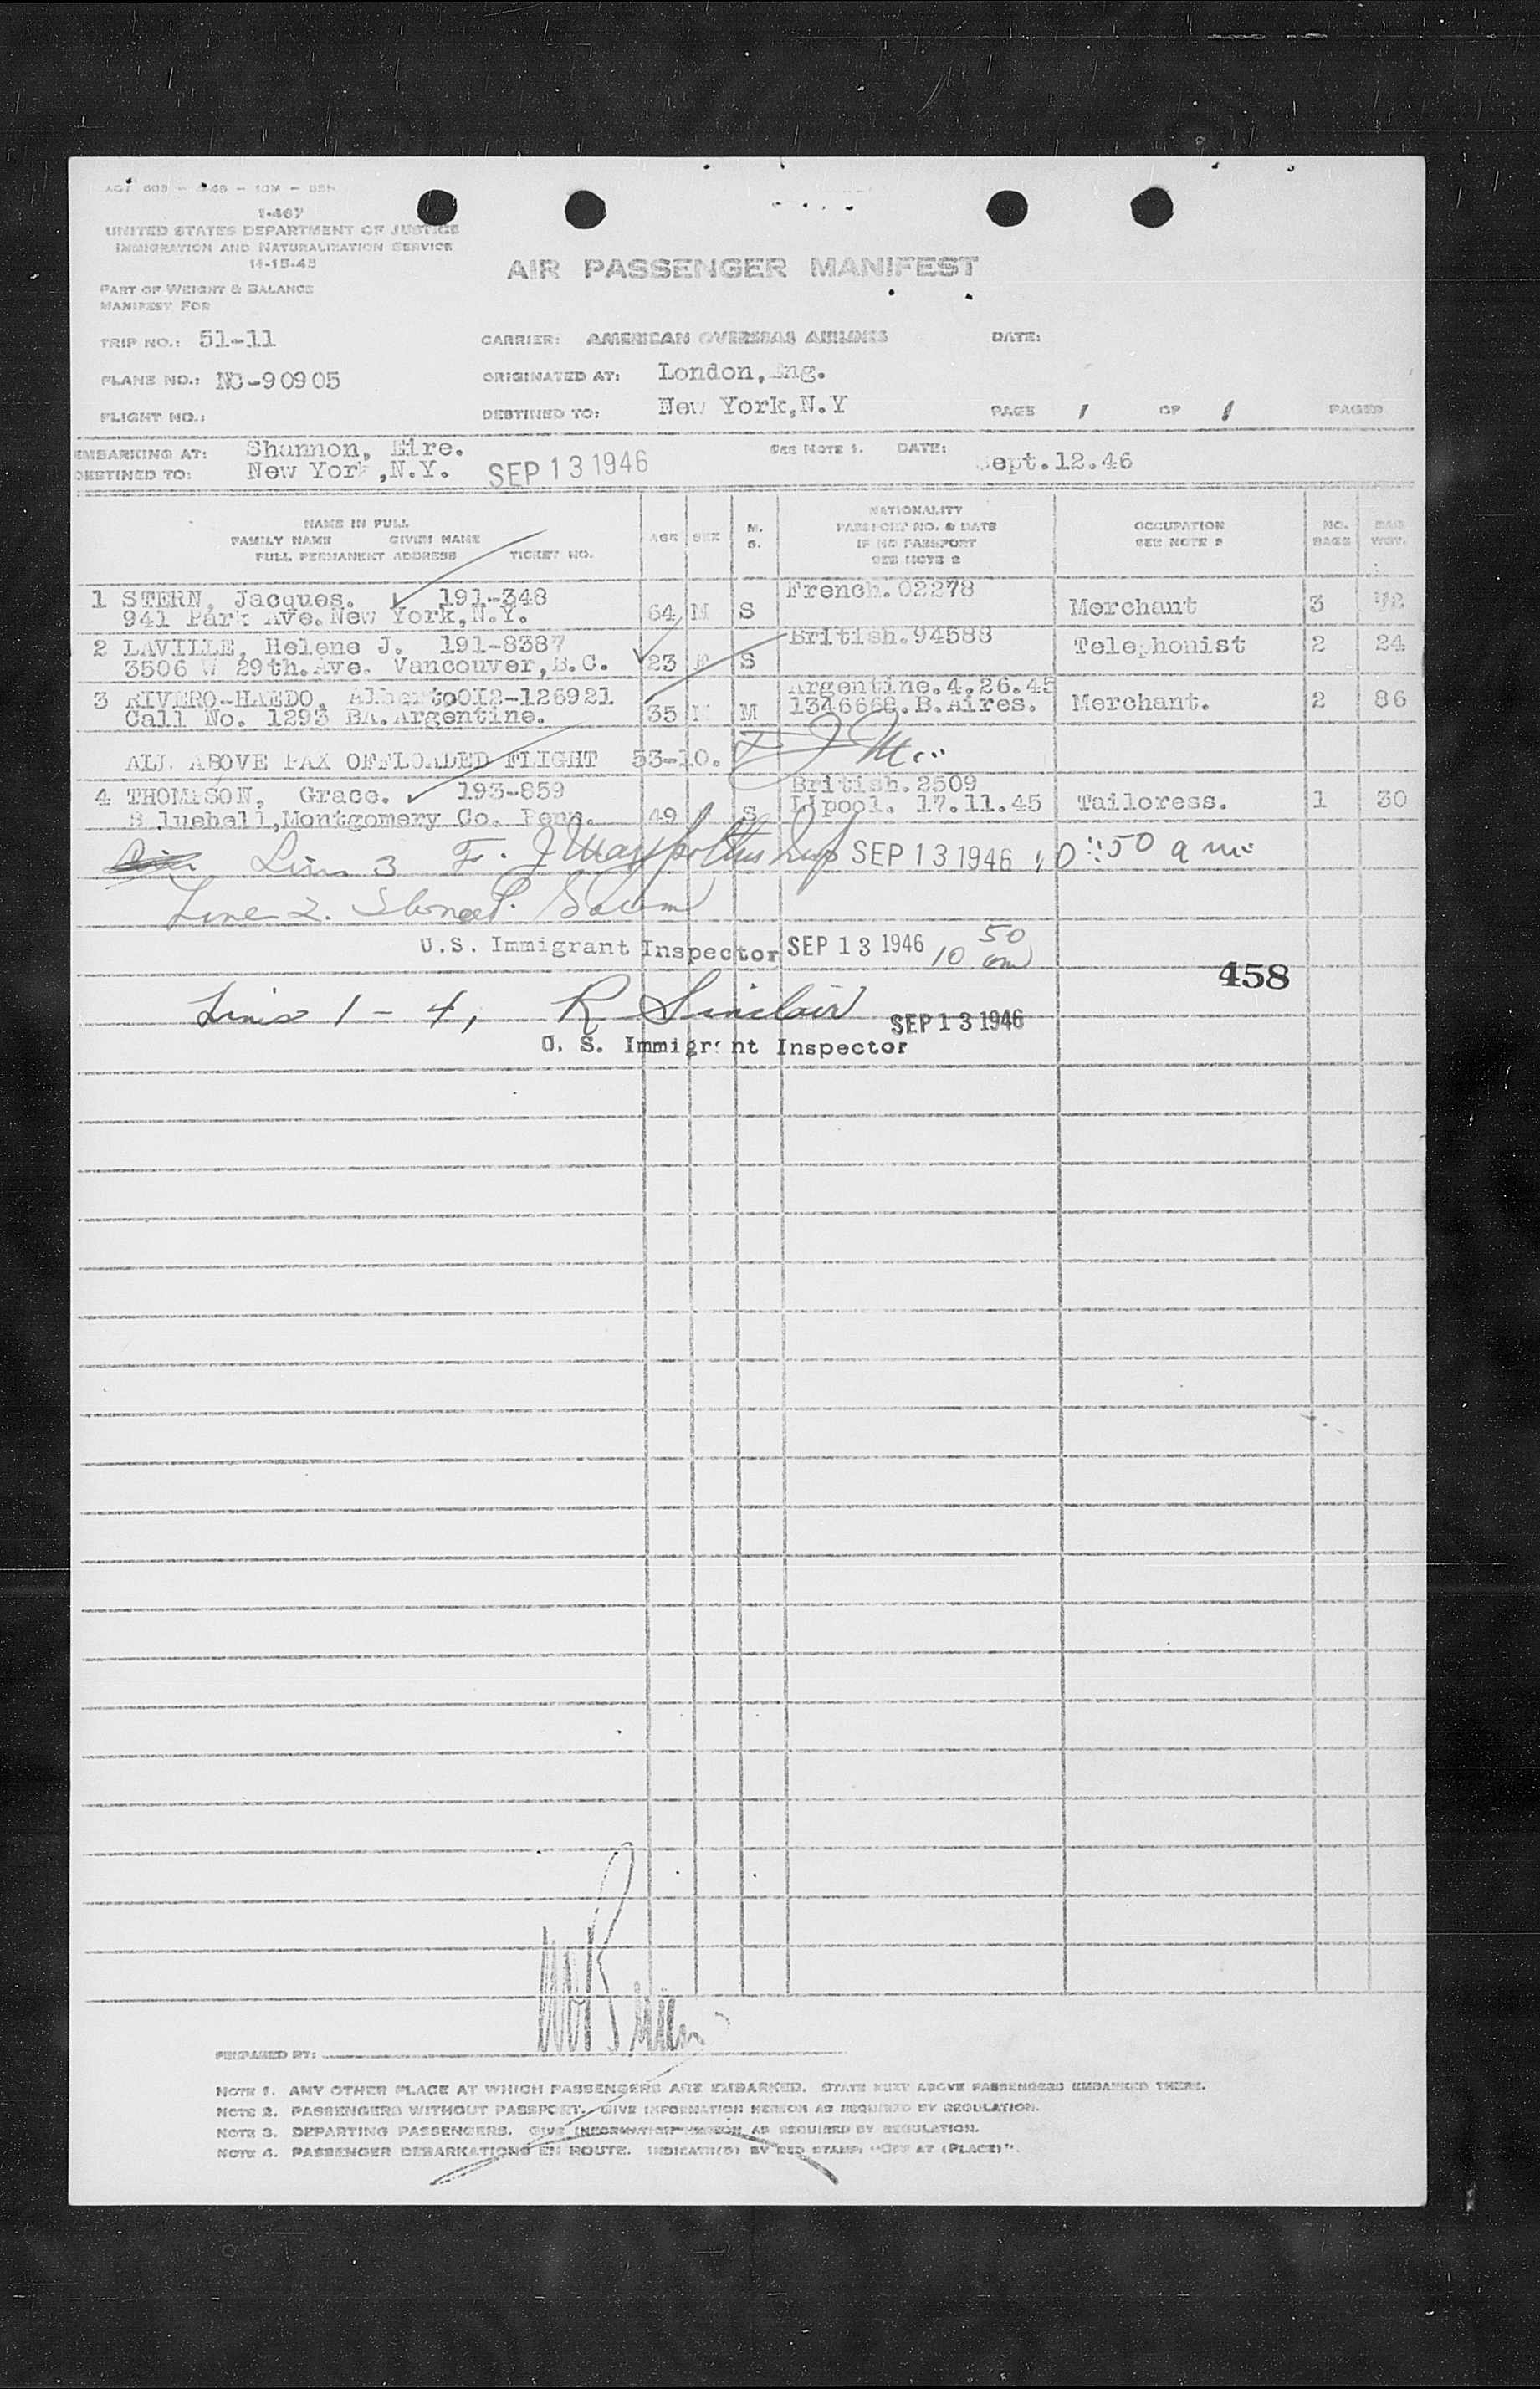 1-467
UNITED STATES DEPARTMENT OF JUSTICE
IMMIGRATION AND NATURALIZATION SERVICE
11-15-45
AIR PASSENGER MANIFEST
PART OF WEIGHT & BALANCE
MANIFEST FOR
TRIP NO.: 51-11 CARRIER: AMERICAN OVERSEAS AIRLINES DATE:
PLANE NO.: NC-90905 ORIGINATED AT: London, Eng.
FLIGHT NO.: DESTINED TO: New York, N.Y PAGE 1 OF 1 PAGES
EMBARKING AT: Shannon, Eire. SEE NOTE 1. DATE: Sept.12.46
DESTINED TO: New York, N.Y. SEP 13 1946
NAME IN FULL
FAMILY NAME GIVEN NAME
FULL PERMANENT ADDRESS TICKET NO. AGE SEX M. S. NATIONALITY PASSPORT NO. & DATE IF NO PASSPORT SEE NOTE 2 OCCUPATION SEE NOTE 3 NO. BAGS BAG WGT.
1 STERN, Jacques. 191-348 French. 02278
941 Park Ave. New York, N.Y. 64 M S Merchant 3 72
2 LAVILLE, Helene J. 191-8387 British. 94588 Telephonist 2 24
3506 W 29th. Ave. Vancouver, B.C. 23 F S
3 RIVERO-HAEDO, Alberto 012-126921 Argentine. 4.26.45
Call No. 1293 BA. Argentine. 35 M M 1346668. B. Aires. Merchant. 2 86
ALL ABOVE PAX OFFLOADED FLIGHT 53-10.
4 THOMASON, Grace. 193-859 British. 2509
Bluehell, Montgomery Co. Penn. 49 S L'pool. 17.11.45 Tailoress. 1 30
Line 3 F. J. SEP 13 1946 10:50 am
Line 2.
U.S. Immigrant Inspector SEP 13 1946 10 50 am
458
Lines 1-4, R Sinclair SEP 13 1946
U. S. Immigrant Inspector
PREPARED BY:
NOTE 1. ANY OTHER PLACE AT WHICH PASSENGERS ARE EMBARKED. STATE NEXT ABOVE PASSENGERS EMBARKED THERE.
NOTE 2. PASSENGERS WITHOUT PASSPORT. GIVE INFORMATION HEREON AS REQUIRED BY REGULATION.
NOTE 3. DEPARTING PASSENGERS. GIVE INFORMATION HEREON AS REQUIRED BY REGULATION.
NOTE 4. PASSENGER DEBARKATIONS EN ROUTE. INDICATE(D) BY RED STAMP: "OFF AT (PLACE)".